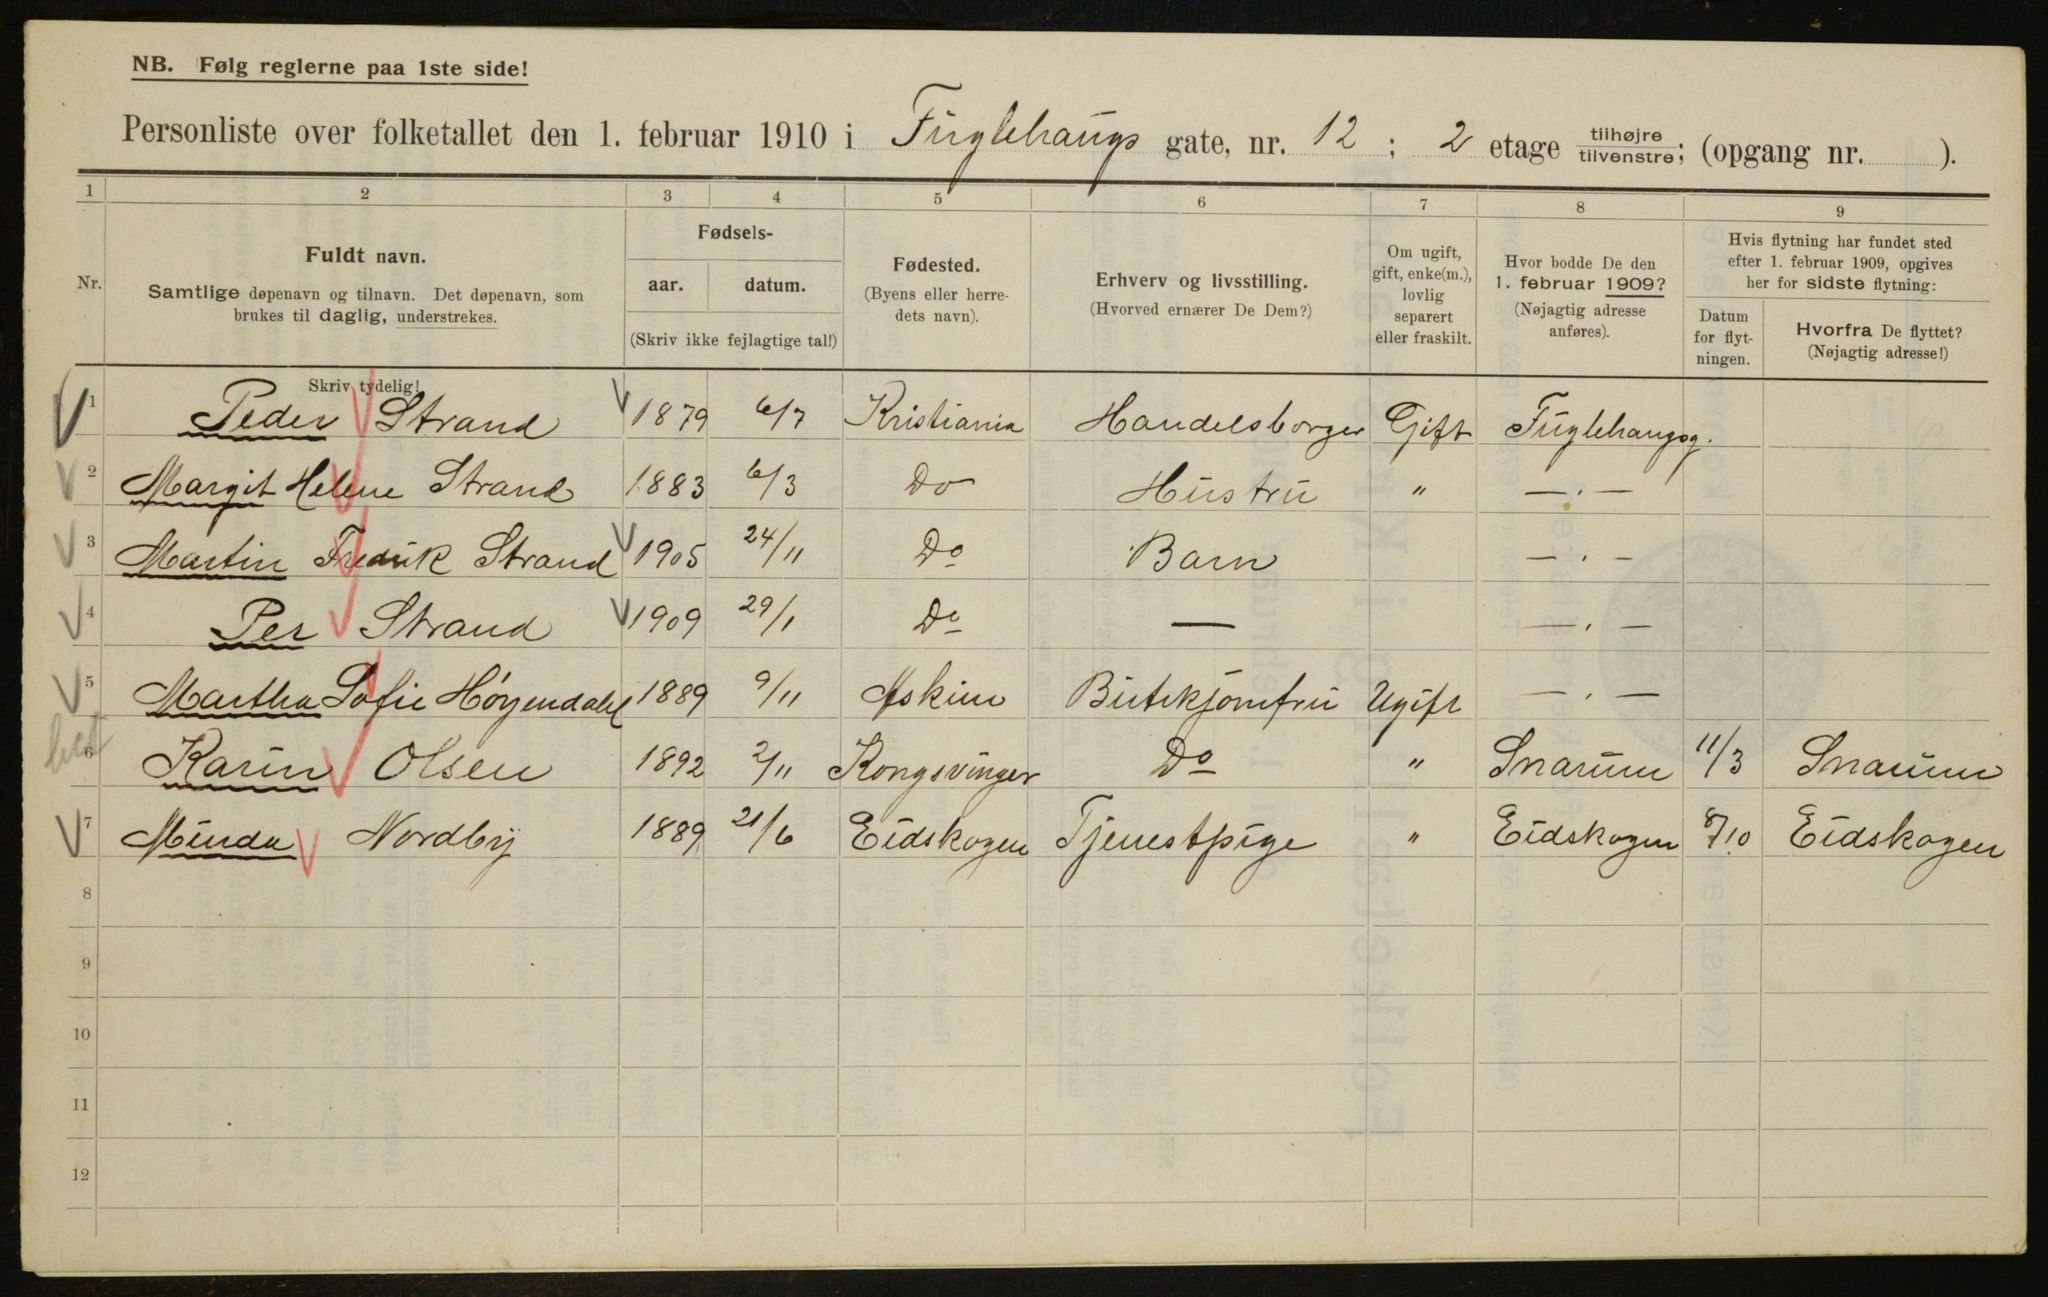 NB. Følg reglerne paa 1ste side!
Personliste over folketallet den 1. februar 1910 i Fuglehaugs gate, nr. 12; 2 etage tilhøjre tilvenstre; (opgang nr. ).
1 2 3 4 5 6 7 8 9
Nr. Fuldt navn. Samtlige døpenavn og tilnavn. Det døpenavn, som brukes til daglig, understrekes. Skriv tydelig!
Fødsels- aar. datum. (Skriv ikke fejlagtige tal!)
Fødested. (Byens eller herredets navn).
Erhverv og livsstilling. (Hvorved ernærer De Dem?)
Om ugift, gift, enke(m.), lovlig separert eller fraskilt.
Hvor bodde De den 1. februar 1909? (Nøjagtig adresse anføres).
Hvis flytning har fundet sted efter 1. februar 1909, opgives her for sidste flytning:
Datum for flytningen. Hvorfra De flyttet? (Nøjagtig adresse!)
1 Peder Strand 1879 6/7 Kristiania Handelsborger Gift Fuglehaugsg.
2 Margit Helene Strand 1883 6/3 Do Hustru " — . —
3 Martin Fredrik Strand 1905 24/11 Do Barn — . —
4 Per Strand 1909 29/1 Do — — . —
5 Martha Sofie Høyendahl 1889 9/11 Askim Butikjomfru Ugift — . —
6 Karin Olsen 1892 2/11 Kongsvinger Do " Snarum 11/3 Snarum
7 Minda Nordby 1889 21/6 Eidskogen Tjenestpige " Eidskogen 8/10 Eidskogen
8
9
10
11
12